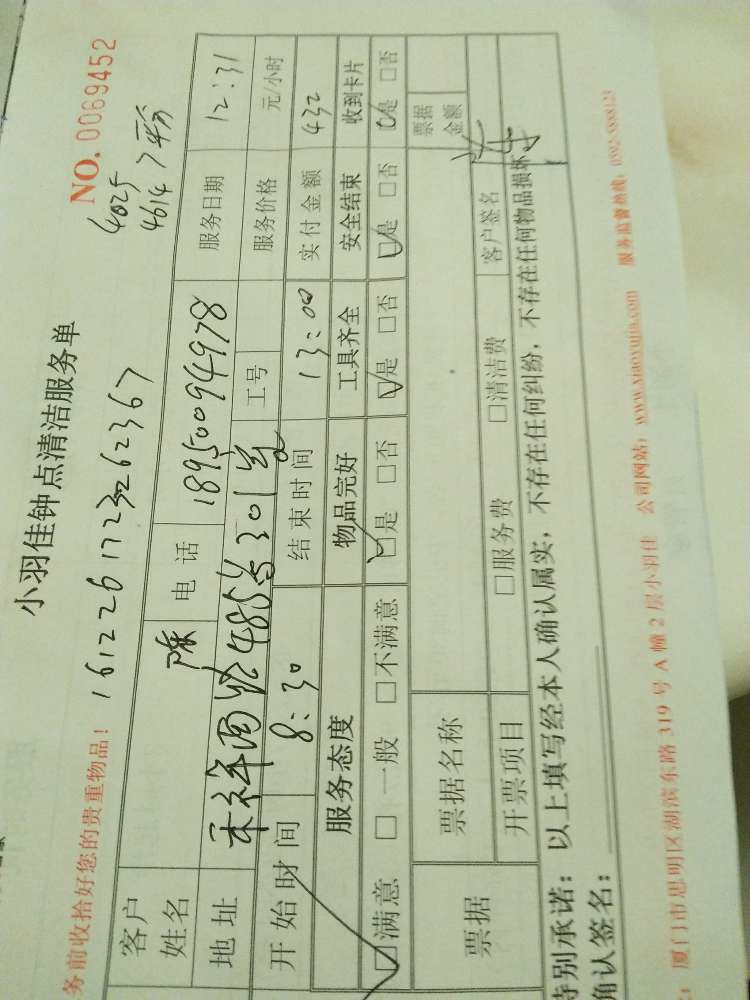 小羽佳钟点清洁服务单
NO. 0069452
务前收拾好您的贵重物品! 1612261723262367
4025
4614
客户姓名 陈 电话 18950094978 服务日期 12:31
地址 禾祥西路485号301室 工号 服务价格 元/小时
开始时间 8:30 结束时间 13:00 实付金额 432
服务态度 物品完好 工具齐全 安全结束 收到卡片
□满意 □一般 □不满意 □是 □否 □是 □否 □是 □否 □是 □否
票据 票据名称 票据金额
开票项目 □服务费 □清洁费 客户签名
特别承诺: 以上填写经本人确认属实, 不存在任何纠纷, 不存在任何物品损坏
确认签名:
厦门市思明区湖滨东路319号A幢2层小羽佳 公司网站: www.xiaoyujia.com 服务监督热线: 0592-5888123